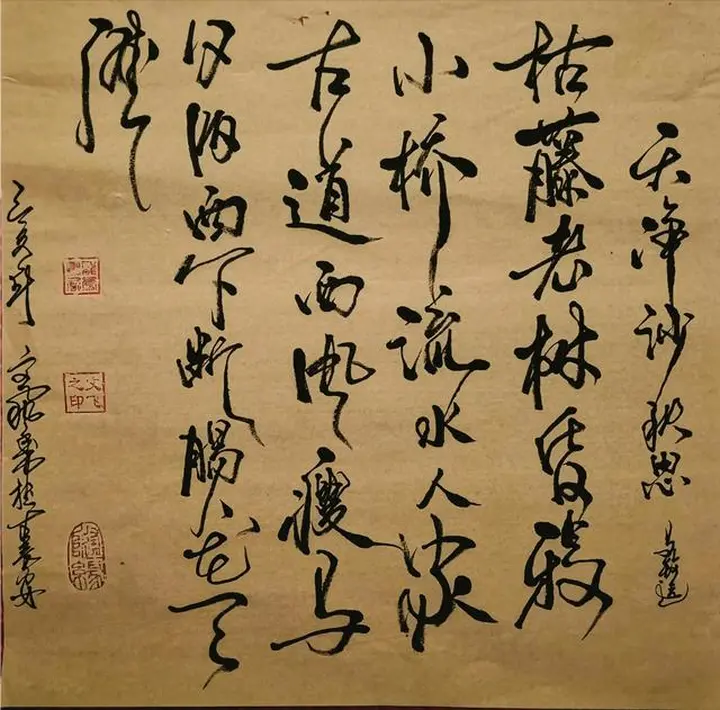 天净沙 秋思 马致远
枯藤老树昏鸦
小桥流水人家
古道西风瘦马
夕阳西下断肠人在天
涯
己亥年
文飞之印